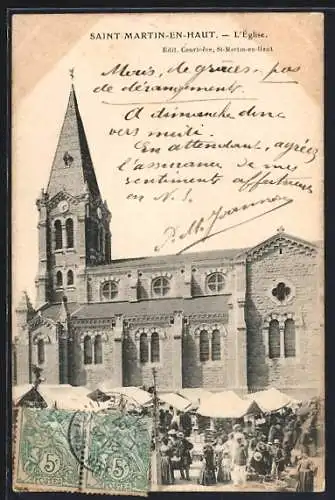 SAINT-MARTIN-EN-HAUT. — L'Église.
Edit. St-Martin-en-Haut
Mais, de grâces, pas
de dérangement.
A dimanche donc
vers midi.
En attendant, agréez
l'assurance de mes
sentiments affectueux
en N. S.
5
5